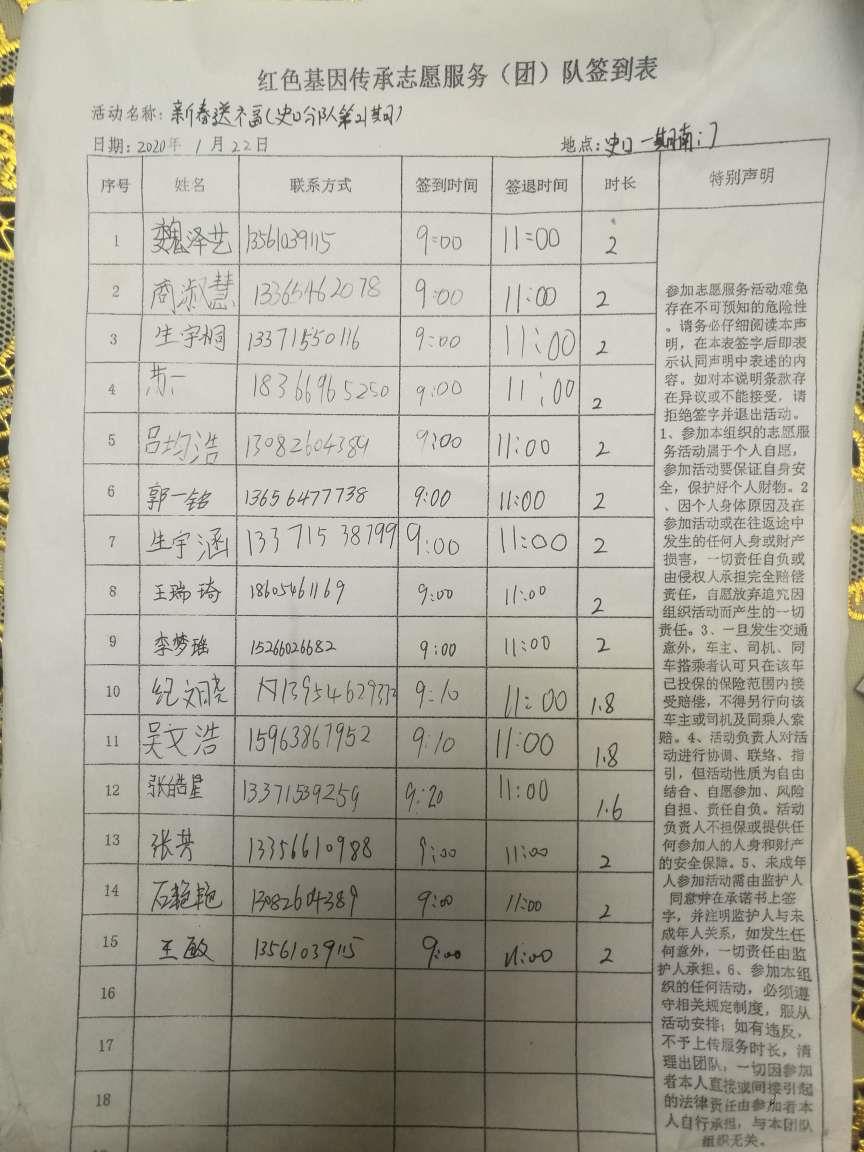 红色基因传承志愿服务（团）队签到表
活动名称：新春送福(史口分队第21期)
日期：2020年1月22日 地点：史口一期南门
序号 姓名 联系方式 签到时间 签退时间 时长 特别声明
1 魏泽艺 13561039115 9:00 11:00 2
2 商淑慧 13365462078 9:00 11:00 2
3 生宇桐 13371550116 9:00 11:00 2
4 18366965250 9:00 11:00 2
5 吕均浩 13082604389 9:00 11:00 2
6 郭一铭 13656477738 9:00 11:00 2
7 生宇涵 13371538799 9:00 11:00 2
8 王瑞琦 18605461169 9:00 11:00 2
9 李梦瑶 15266026682 9:00 11:00 2
10 纪文晓 9:10 11:00 1.8
11 吴文浩 15963867952 9:10 11:00 1.8
12 张皓星 13371539259 9:20 11:00 1.6
13 张芳 13356610988 9:00 11:00 2
14 石艳艳 13082604389 9:00 11:00 2
15 王敏 13561039115 9:00 11:00 2
16
17
18
参加志愿服务活动难免
存在不可预知的危险性
。请务必仔细阅读本声
明，在本表签字后即表
示认同声明中表述的内
容。如对本说明条款存
在异议或不能接受，请
拒绝签字并退出活动。
1、参加本组织的志愿服
务活动属于个人自愿，
参加活动要保证自身安
全，保护好个人财物。2
、因个人身体原因及在
参加活动或在往返途中
发生的任何人身或财产
损害，一切责任自负或
由侵权人承担完全赔偿
责任，自愿放弃追究因
组织活动而产生的一切
责任。3、一旦发生交通
意外，车主、司机、同
车搭乘者认可只在该车
已投保的保险范围内接
受赔偿，不得另行向该
车主或司机及同乘人索
赔。4、活动负责人对活
动进行协调、联络、指
引，但活动性质为自由
结合、自愿参加、风险
自担、责任自负。活动
负责人不担保或提供任
何参加人的人身和财产
的安全保障。5、未成年
人参加活动需由监护人
同意并在承诺书上签
字，并注明监护人与未
成年人关系，如发生任
何意外，一切责任由监
护人承担。6、参加本组
织的任何活动，必须遵
守相关规定制度，服从
活动安排；如有违反，
不予上传服务时长，清
理出团队，一切因参加
者本人直接或间接引起
的法律责任由参加者本
人自行承担，与本团队
组织无关。